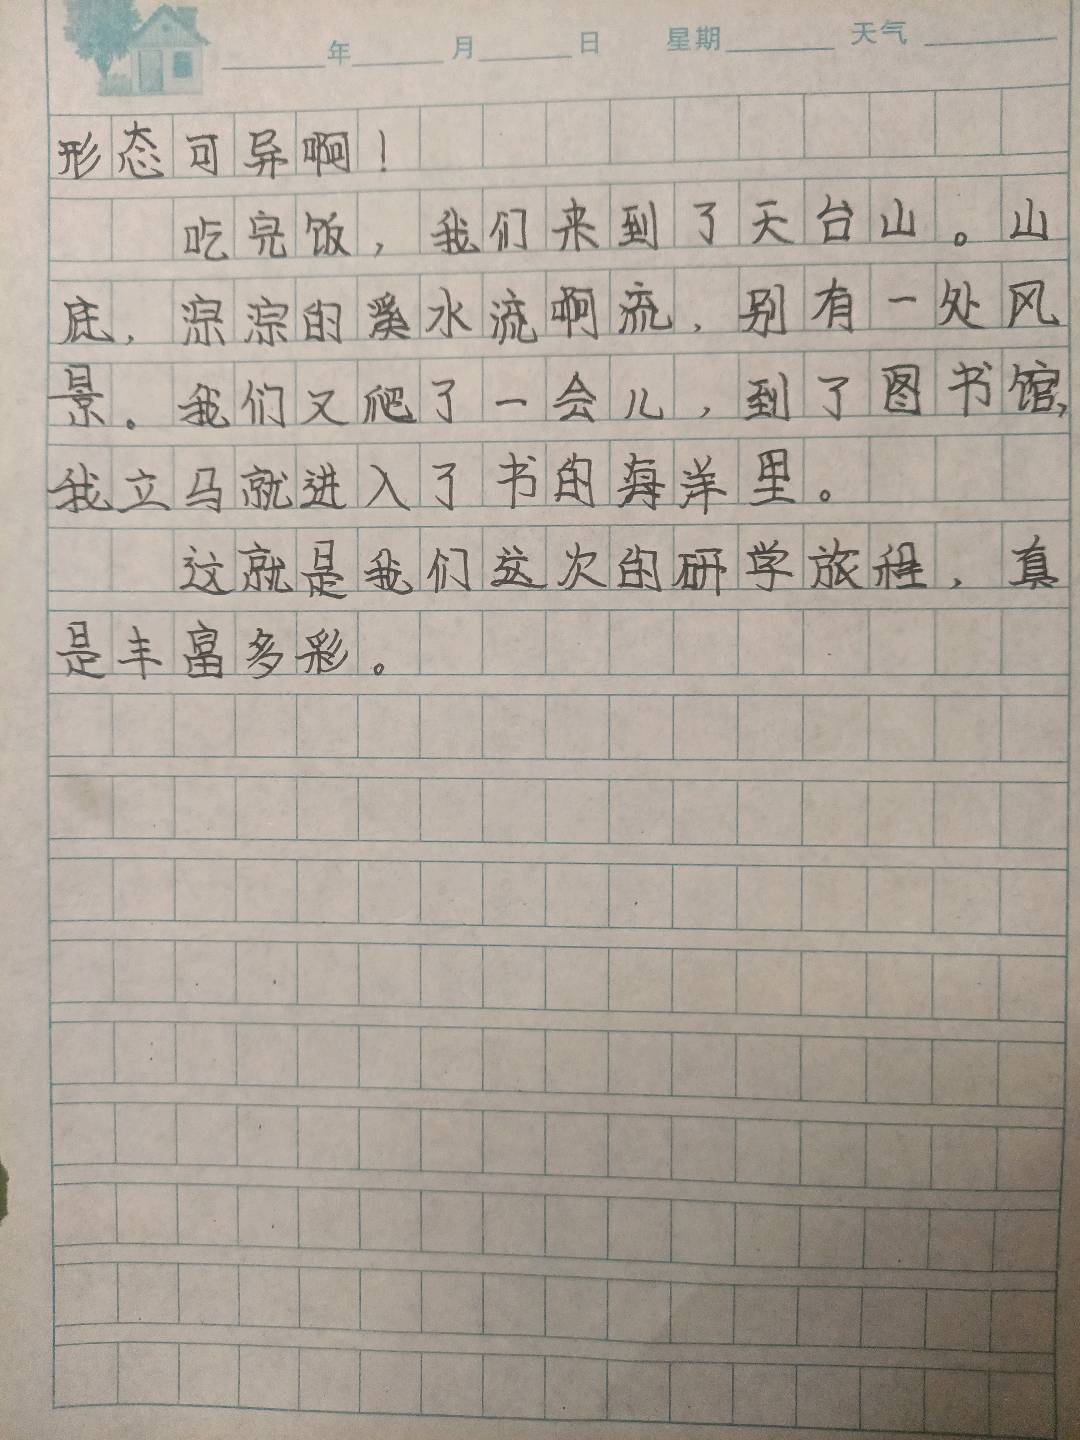 年 月 日 星期 天气
形态可异啊！
吃完饭，我们来到了天台山。山
底，淙淙的溪水流啊流，别有一处风
景。我们又爬了一会儿，到了图书馆，
我立马就进入了书的海洋里。
这就是我们这次的研学旅程，真
是丰富多彩。